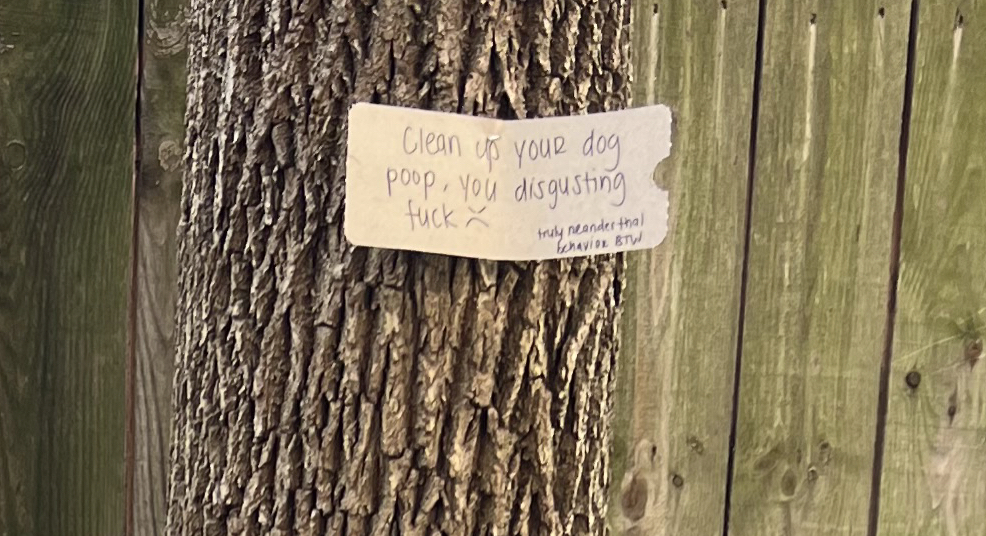 Clean up your dog
poop, you disgusting
fuck
truly neanderthal
behavior BTW